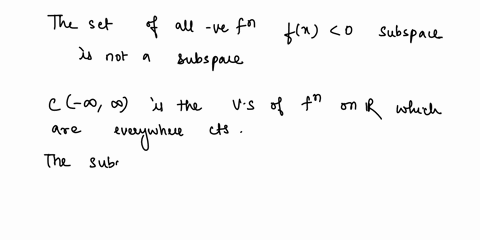 The set of all -ve fⁿ f(x) < 0 subspace
is not a subspace
C(-∞, ∞) is the V.S of fⁿ on R which
are everywhere cts.
The sub